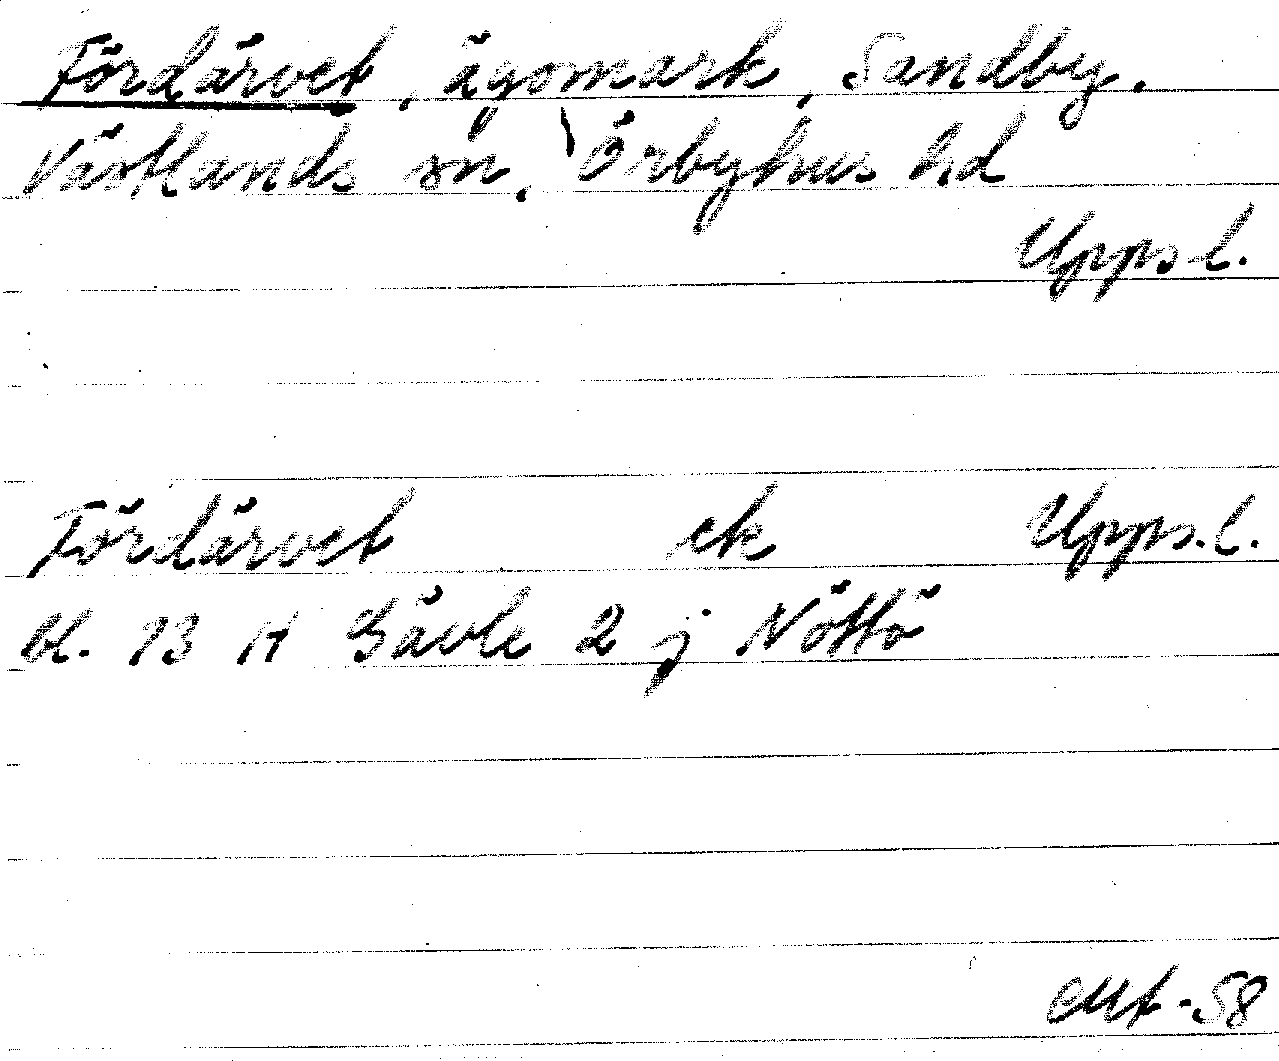 Fördärvet, ägomark, Sandby.
Västlands sn, Örbyhus hd
Upps.l.
Fördärvet ek Upps.l.
bl. 13 H Gävle 2 j Nöttö
-58